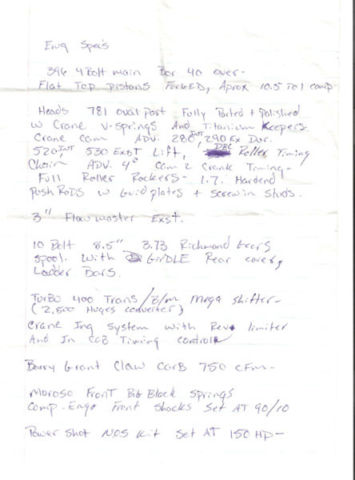 Eng Specs
396 4 Bolt main Bor 40 over-
Flat Top pistons FORGED, Aprox 10.5 To 1 comp
Heads 781 oval port Fully Ported + Polished
w Crane V-springs And Titanium Keepers
Crane cam ADV. 280 INT 290 Ex Dur.
520 INT 530 EXST Lift, DBL Roller Timing
Chain ADV. 4° Cam 2 Crank Timing-
Full Roller Rockers- 1.7. Hardend
Push RoDS w Guid plates + screw in studs.
3" Flowmaster Exst.
10 Bolt 8.5" 3.73 Richmond Gears
spool. With GIRDLE Rear cover,
Ladder Bars.
Turbo 400 Trans / B/m Mega shifter-
(2,800 Hughes converter)
Crane Ing system with Rev limiter
And In CAB Timing control
Barry Grant Claw Carb 750 cfm-
Moroso Front Big Block Springs
Comp-Enge Front shocks Set AT 90/10
Power Shot NOS Kit Set AT 150 HP-